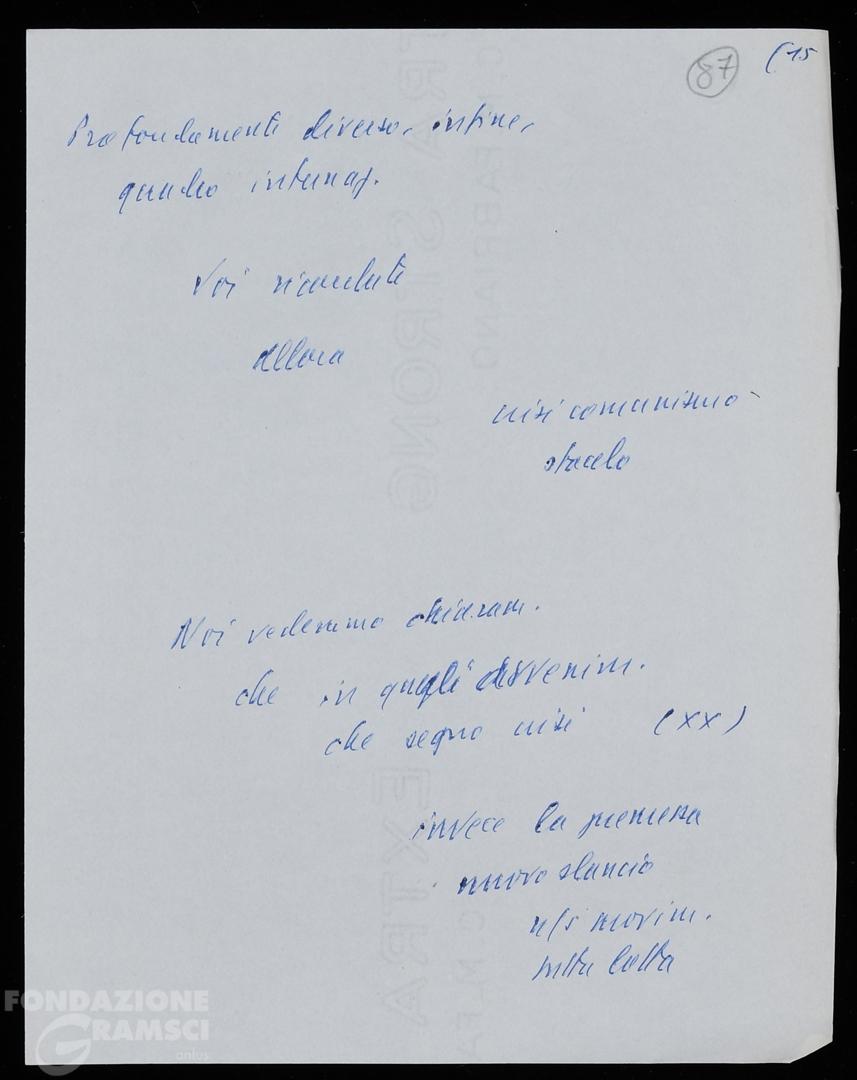 87 (15
Profondamente diverso, infine,
quadro internaz.
Voi ricordate
allora
crisi comunismo
sfacelo
Noi vedemmo chiaram.
che in quegli avvenim.
che segno crisi (XX)
invece la premessa
nuovo slancio
n/s movim.
tutta lotta
FONDAZIONE
GRAMSCI
onlus